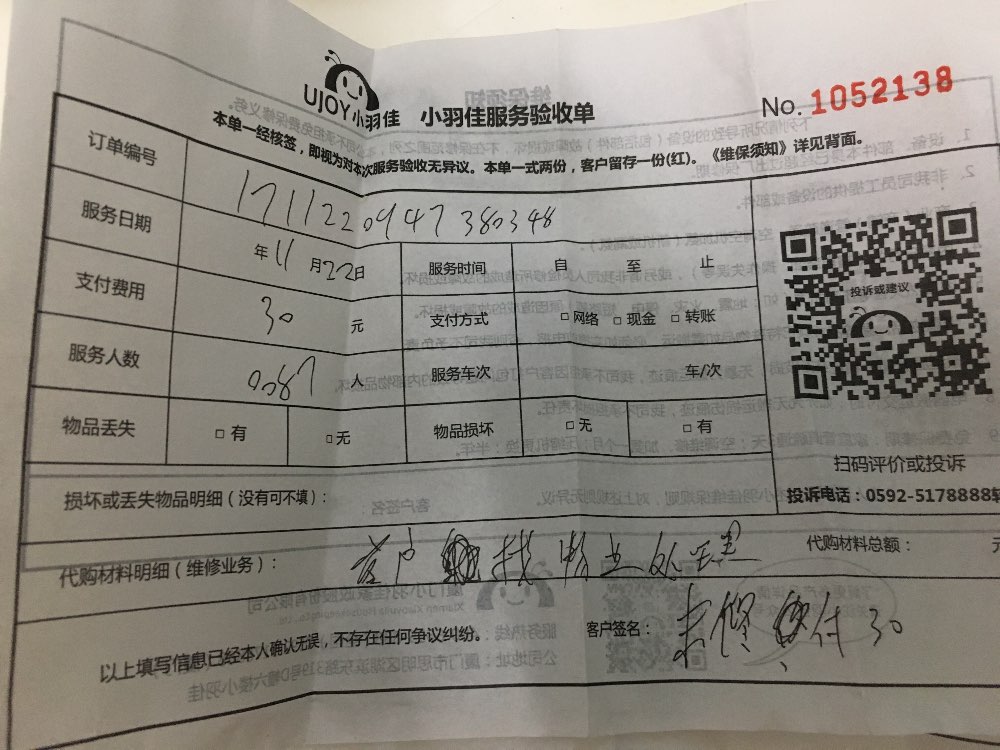 UJOY小羽佳 小羽佳服务验收单
No. 1052138
本单一经核签，即视为对本次服务验收无异议。本单一式两份，客户留存一份(红)。《维保须知》详见背面。
订单编号 1711220947380348
服务日期 年11月22日 服务时间 自 至 止
支付费用 30 元 支付方式 □网络 □现金 □转账
服务人数 0087 人 服务车次 车/次
物品丢失 □有 □无 物品损坏 □无 □有
投诉或建议
扫码评价或投诉
投诉电话：0592-5178888转
损坏或丢失物品明细（没有可不填）：
代购材料明细（维修业务）： 客户 找物业处理 代购材料总额： 元
以上填写信息已经本人确认无误，不存在任何争议纠纷。 客户签名： 未修 付30